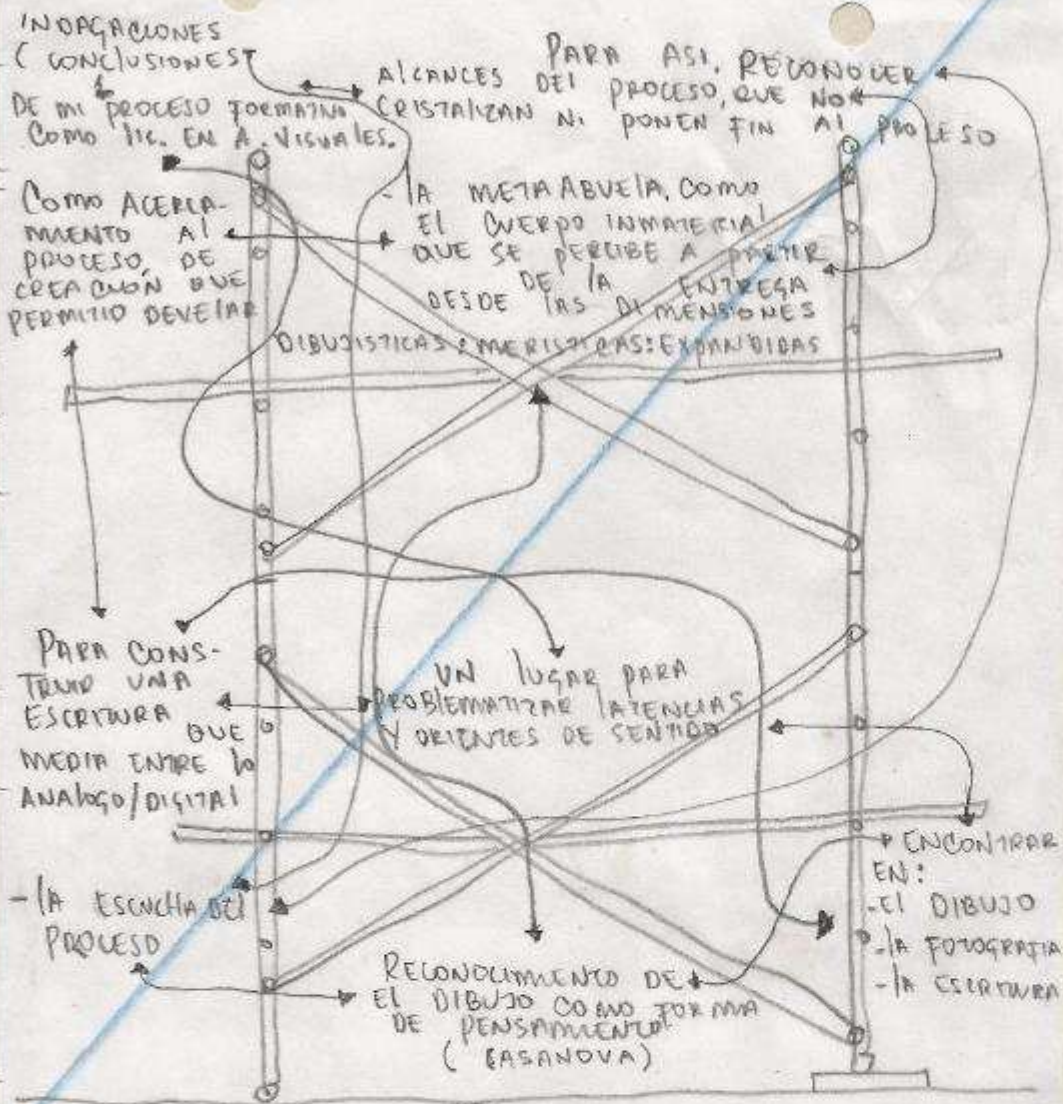 INDAGACIONES
( CONCLUSIONES
DE MI PROCESO FORMATIVO
COMO LIC. EN A. VISUALES.
ALCANCES
PARA ASI, RECONOCER
DEL PROCESO, QUE NO
CRISTALIZAN NI PONEN FIN AL PROCESO
COMO ACERCA-
MIENTO AL
PROCESO, DE
CREACION QUE
PERMITIO DEVELAR
- LA METAABUELA, COMO
EL CUERPO INMATERIAL
QUE SE PERCIBE A PARTIR
DE LA ENTREGA
DESDE LAS DIMENSIONES
DIBUJISTICAS: MERISTICAS: EXPANDIDAS
PARA CONS-
TRUIR UNA
ESCRITURA
QUE
MEDIA ENTRE LO
ANALOGO/DIGITAL
UN LUGAR PARA
PROBLEMATIZAR LATENCIAS
Y ORIENTES DE SENTIDO
- LA ESCUCHA DEL
PROCESO
RECONOCIMIENTO DE
EL DIBUJO COMO FORMA
DE PENSAMIENTO
( CASANOVA )
ENCONTRAR
EN:
- EL DIBUJO
- LA FOTOGRAFIA
- LA ESCRITURA